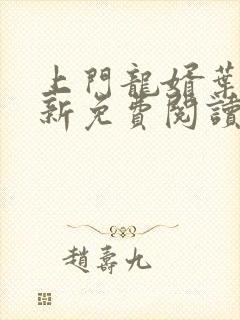 上門龍婿葉
新免費閱讀
趙壽九